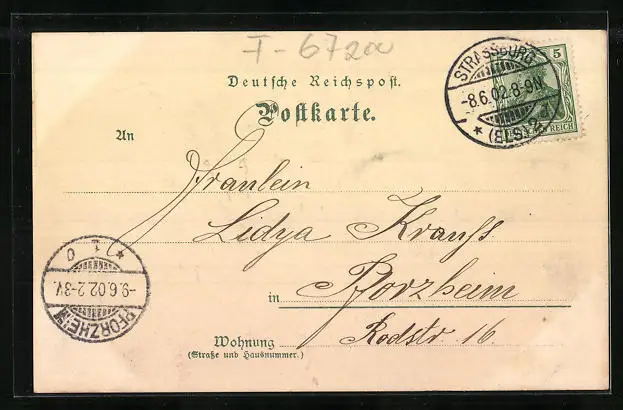 T-67200
Deutsche Reichspost.
Postkarte.
STRASSBURG
-8.6.02.8-9N.
* (ELS) 2.
5
REICH
An
Fräulein
Lidya Krauss
in Pforzheim
Wohnung Rodstr. 16
(Straße und Hausnummer.)
* 1 0
-9.6.02.2-3V.
PFORZHEIM